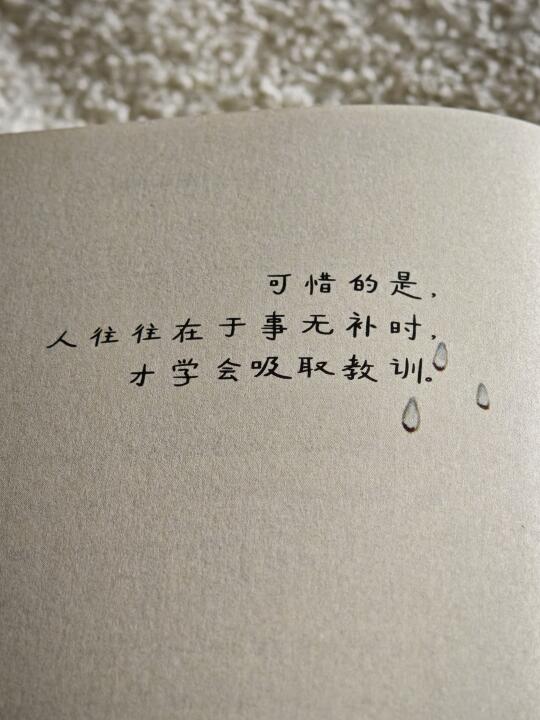 可惜的是，
人往往在于事无补时，
才学会吸取教训。